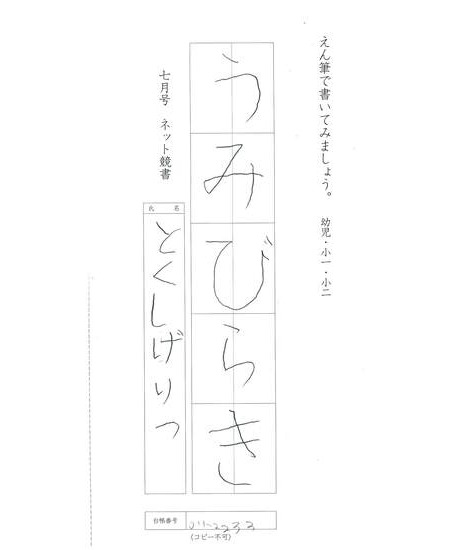 えん筆で書いてみましょう。 幼児・小一・小二
うみびらき
七月号 ネット競書
氏名
とくしげりつ
台帳番号
(コピー不可)